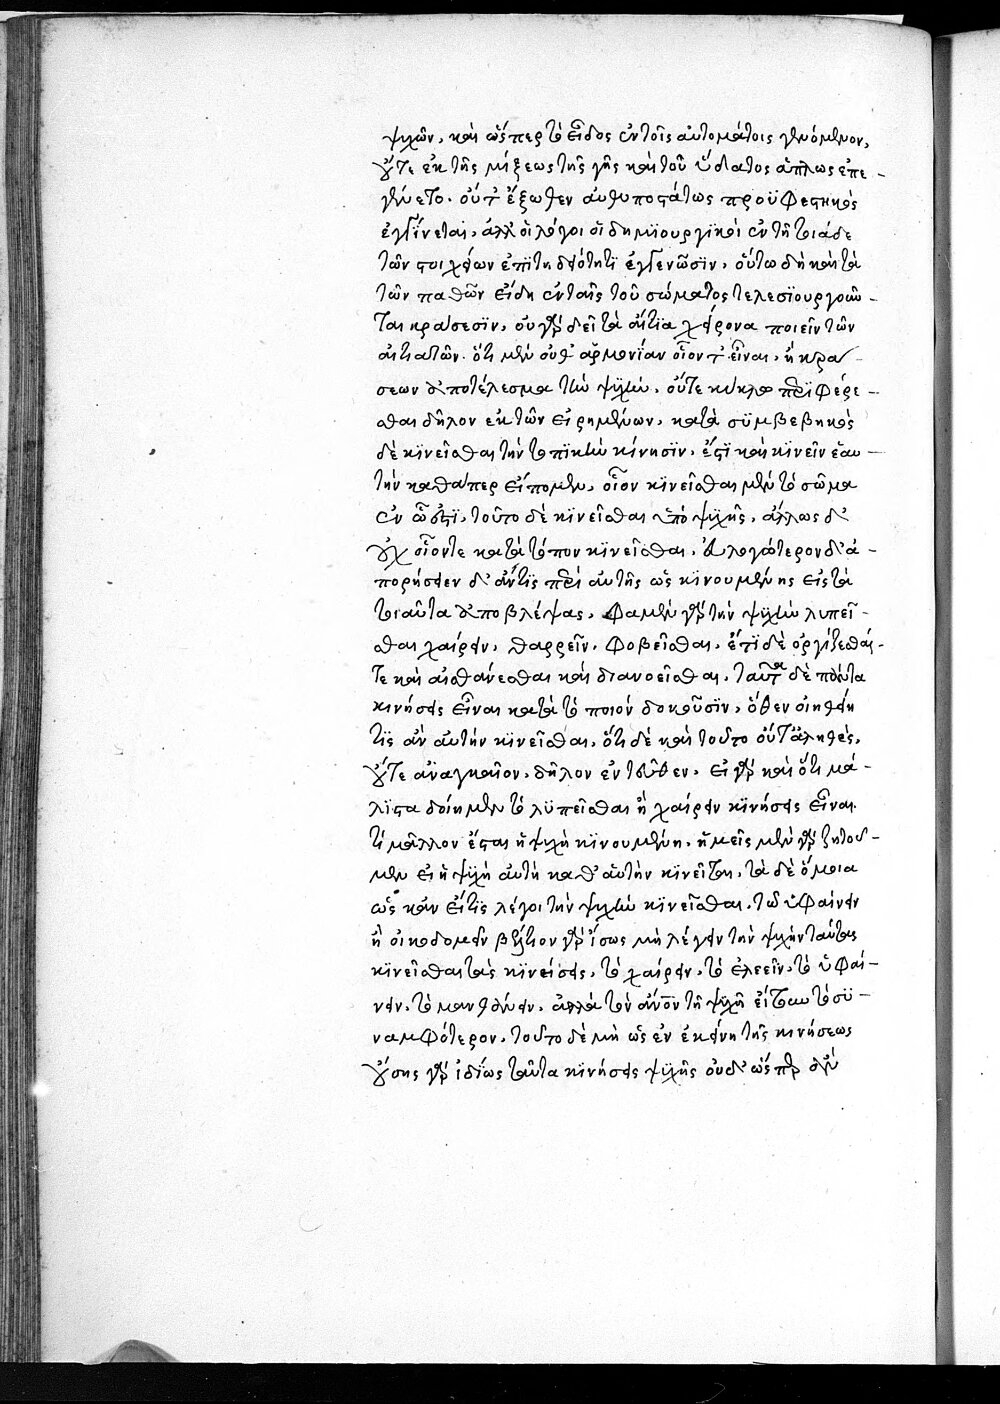 ψυχῶν, καὶ ὥσπερ τὸ εἶδος ἐν τοῖς αὐτομάτοις γενόμενον,
οὔτε ἐκ τῆς μίξεως τῆς γῆς καὶ τοῦ ὕδατος ἁπλῶς ἐπε-
γένετο. οὔτ' ἔξωθεν αὐθυποστάτως προϋφεστηκὸς
ἐγγίνεται, ἀλλ' οἱ λόγοι οἱ δημιουργικοὶ ἐν τῇ τοιᾷδε
τῶν στοιχείων ἐπιτηδειότητι ἐγγενῶσιν, οὕτω δὴ καὶ τὰ
τῶν παθῶν εἴδη ἐν ταῖς τοῦ σώματος τελεσιουργοῦν-
ται κράσεσιν, οὐ γὰρ δεῖ τὰ αἴτια χείρονα ποιεῖν τῶν
αἰτιατῶν. ὅτι μὲν οὔθ' ἁρμονίαν οἷόν τ' εἶναι, ἢ κρά-
σεων ἀποτέλεσμα τὴν ψυχὴν, οὔτε κύκλῳ περιφέρε-
σθαι δῆλον ἐκ τῶν εἰρημένων, κατὰ συμβεβηκὸς
δὲ κινεῖσθαι τὴν τοπικὴν κίνησιν, ἔστι καὶ κινεῖν ἑαυ-
τὴν καθάπερ εἴπομεν, οἷον κινεῖσθαι μὲν τὸ σῶμα
ἐν ᾧ ἐστι, τοῦτο δὲ κινεῖσθαι ὑπὸ ψυχῆς, ἄλλως δ'
οὐχ οἷόντε κατὰ τόπον κινεῖσθαι. εὐλογώτερον δ' ἀ-
πορήσειεν ἄν τις περὶ αὐτῆς ὡς κινουμένης εἰς τὰ
τοιαῦτα ἀποβλέψας, φαμὲν γὰρ τὴν ψυχὴν λυπεῖ-
σθαι χαίρειν, θαρρεῖν, φοβεῖσθαι, ἔτι δὲ ὀργίζεσθαί-
τε καὶ αἰσθάνεσθαι καὶ διανοεῖσθαι, ταῦτα δὲ πάντα
κινήσεις εἶναι κατὰ τὸ ποιόν δοκοῦσιν, ὅθεν οἰηθείη
τις ἂν αὐτὴν κινεῖσθαι, ὅτι δὲ καὶ τοῦτο οὔτ' ἀληθὲς,
οὔτε ἀναγκαῖον, δῆλον ἐντεῦθεν. εἰ γὰρ καὶ ὅτι μά-
λιστα δοίημεν τὸ λυπεῖσθαι ἢ χαίρειν κινήσεις εἶναι.
τί μᾶλλον ἔσται ἡ ψυχὴ κινουμένη, ἡμεῖς μὲν γὰρ ζητοῦ-
μεν εἰ ἡ ψυχὴ αὐτὴ καθ' αὑτὴν κινεῖται, τὰ δὲ ὅμοια
ὡς κἂν εἴ τις λέγοι τὴν ψυχὴν κινεῖσθαι, τῷ ὑφαίνειν
ἢ οἰκοδομεῖν βέλτιον γὰρ ἴσως μὴ λέγειν τὴν ψυχὴν ταύτας
κινεῖσθαι τὰς κινήσεις, τὸ χαίρειν, τὸ ἐλεεῖν, τὸ ὑφαί-
νειν, τὸ μανθάνειν, ἀλλὰ τὸν ἄνον τῇ ψυχῇ εἴτουν τὸ συ-
ναμφότερον, τοῦτο δὲ μὴ ὡς ἐν ἐκείνῃ τῆς κινήσεως
οὔσης γὰρ ἰδίως ταῦτα κινήσεις ψυχῆς οὐδ' ὥσπερ